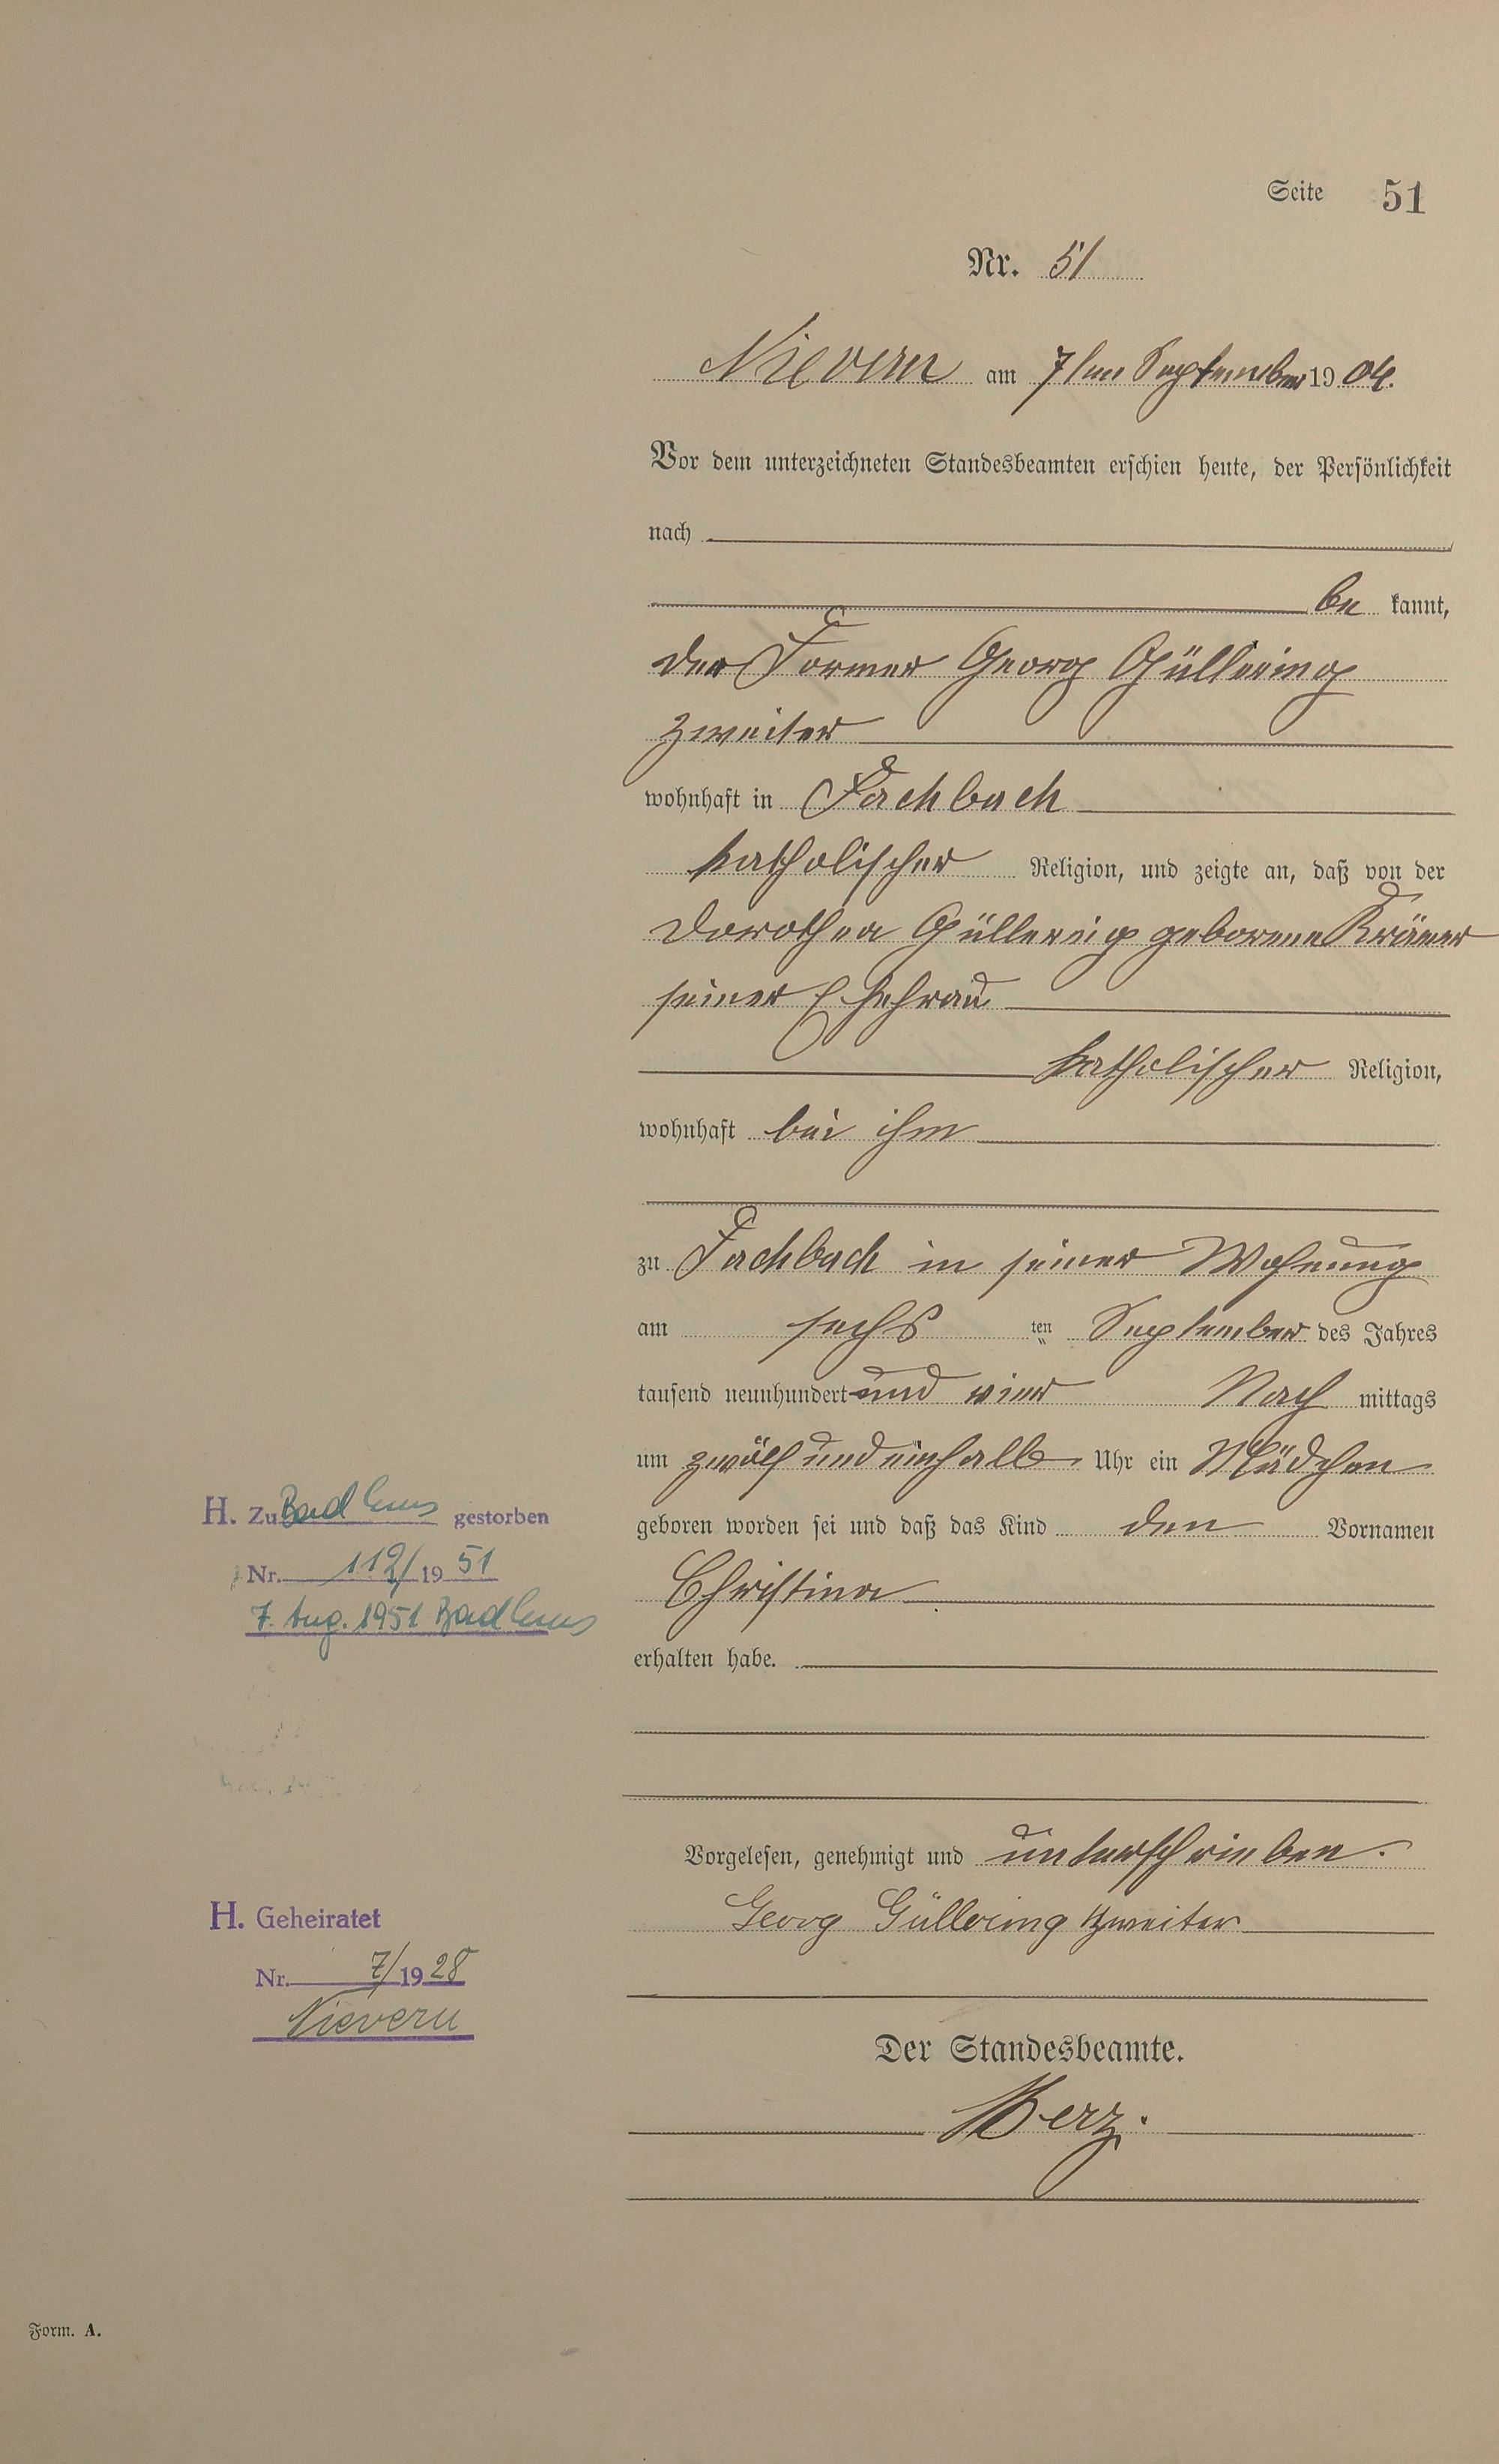 Seite 51
Nr. 51
Nievern am 7ten September 1904.
Vor dem unterzeichneten Standesbeamten erschien heute, der Persönlichkeit
nach
be kannt,
der Former Georg Güllering
zweiter
wohnhaft in Fachbach
katholischer Religion, und zeigte an, daß von der
Dorothea Güllering geborene Krämer
seiner Ehefrau
katholischer Religion,
wohnhaft bei ihm
zu Fachbach in seiner Wohnung
am sechs ten September des Jahres
tausend neunhundert und vier Nach mittags
um zwölf und einhalb Uhr ein Mädchen
geboren worden sei und daß das Kind den Vornamen
Christina
erhalten habe.
Vorgelesen, genehmigt und unterschrieben.
Georg Güllering zweiter
Der Standesbeamte.
H. Zu Bad Ems gestorben
Nr. 112/1951
7. Aug. 1951 Bad Ems
H. Geheiratet
Nr. 7/1928
Nievern
Form. A.